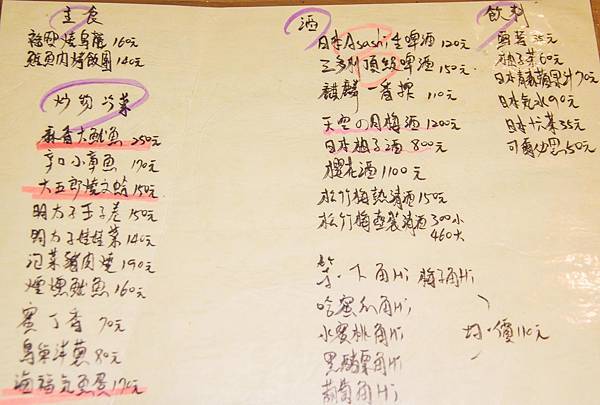 主食
雞肉燒烏龍 160元
鮭魚肉烤飯團 140元
炒物冷菜
麻香大魷魚 250元
辛口小章魚 170元
大五郎燒文蛤 150元
明太子玉子卷 150元
明太子娃娃菜 140元
泡菜豬肉燒 190元
煙燻魷魚 160元
蜜丁香 70元
烏魚洋蔥 80元
海福氣魚蛋 170元
酒
日本Asashi生啤酒 120元
三多利頂級啤酒 150元
麒麟一番搾 110元
天空の月梅酒 1200元
日本柚子酒 800元
櫻花酒 1100元
松竹梅熱清酒 150元
松竹梅藝裝清酒 300小
460大
角Hi 梅子角Hi
哈蜜瓜角Hi
水蜜桃角Hi
黑醋栗角Hi
葡萄角Hi
均一價110元
飲料
雪碧 35元
柚子茶 60元
日本青森蘋果汁 70元
日本氣水 90元
日本十六茶 35元
可爾必思 50元